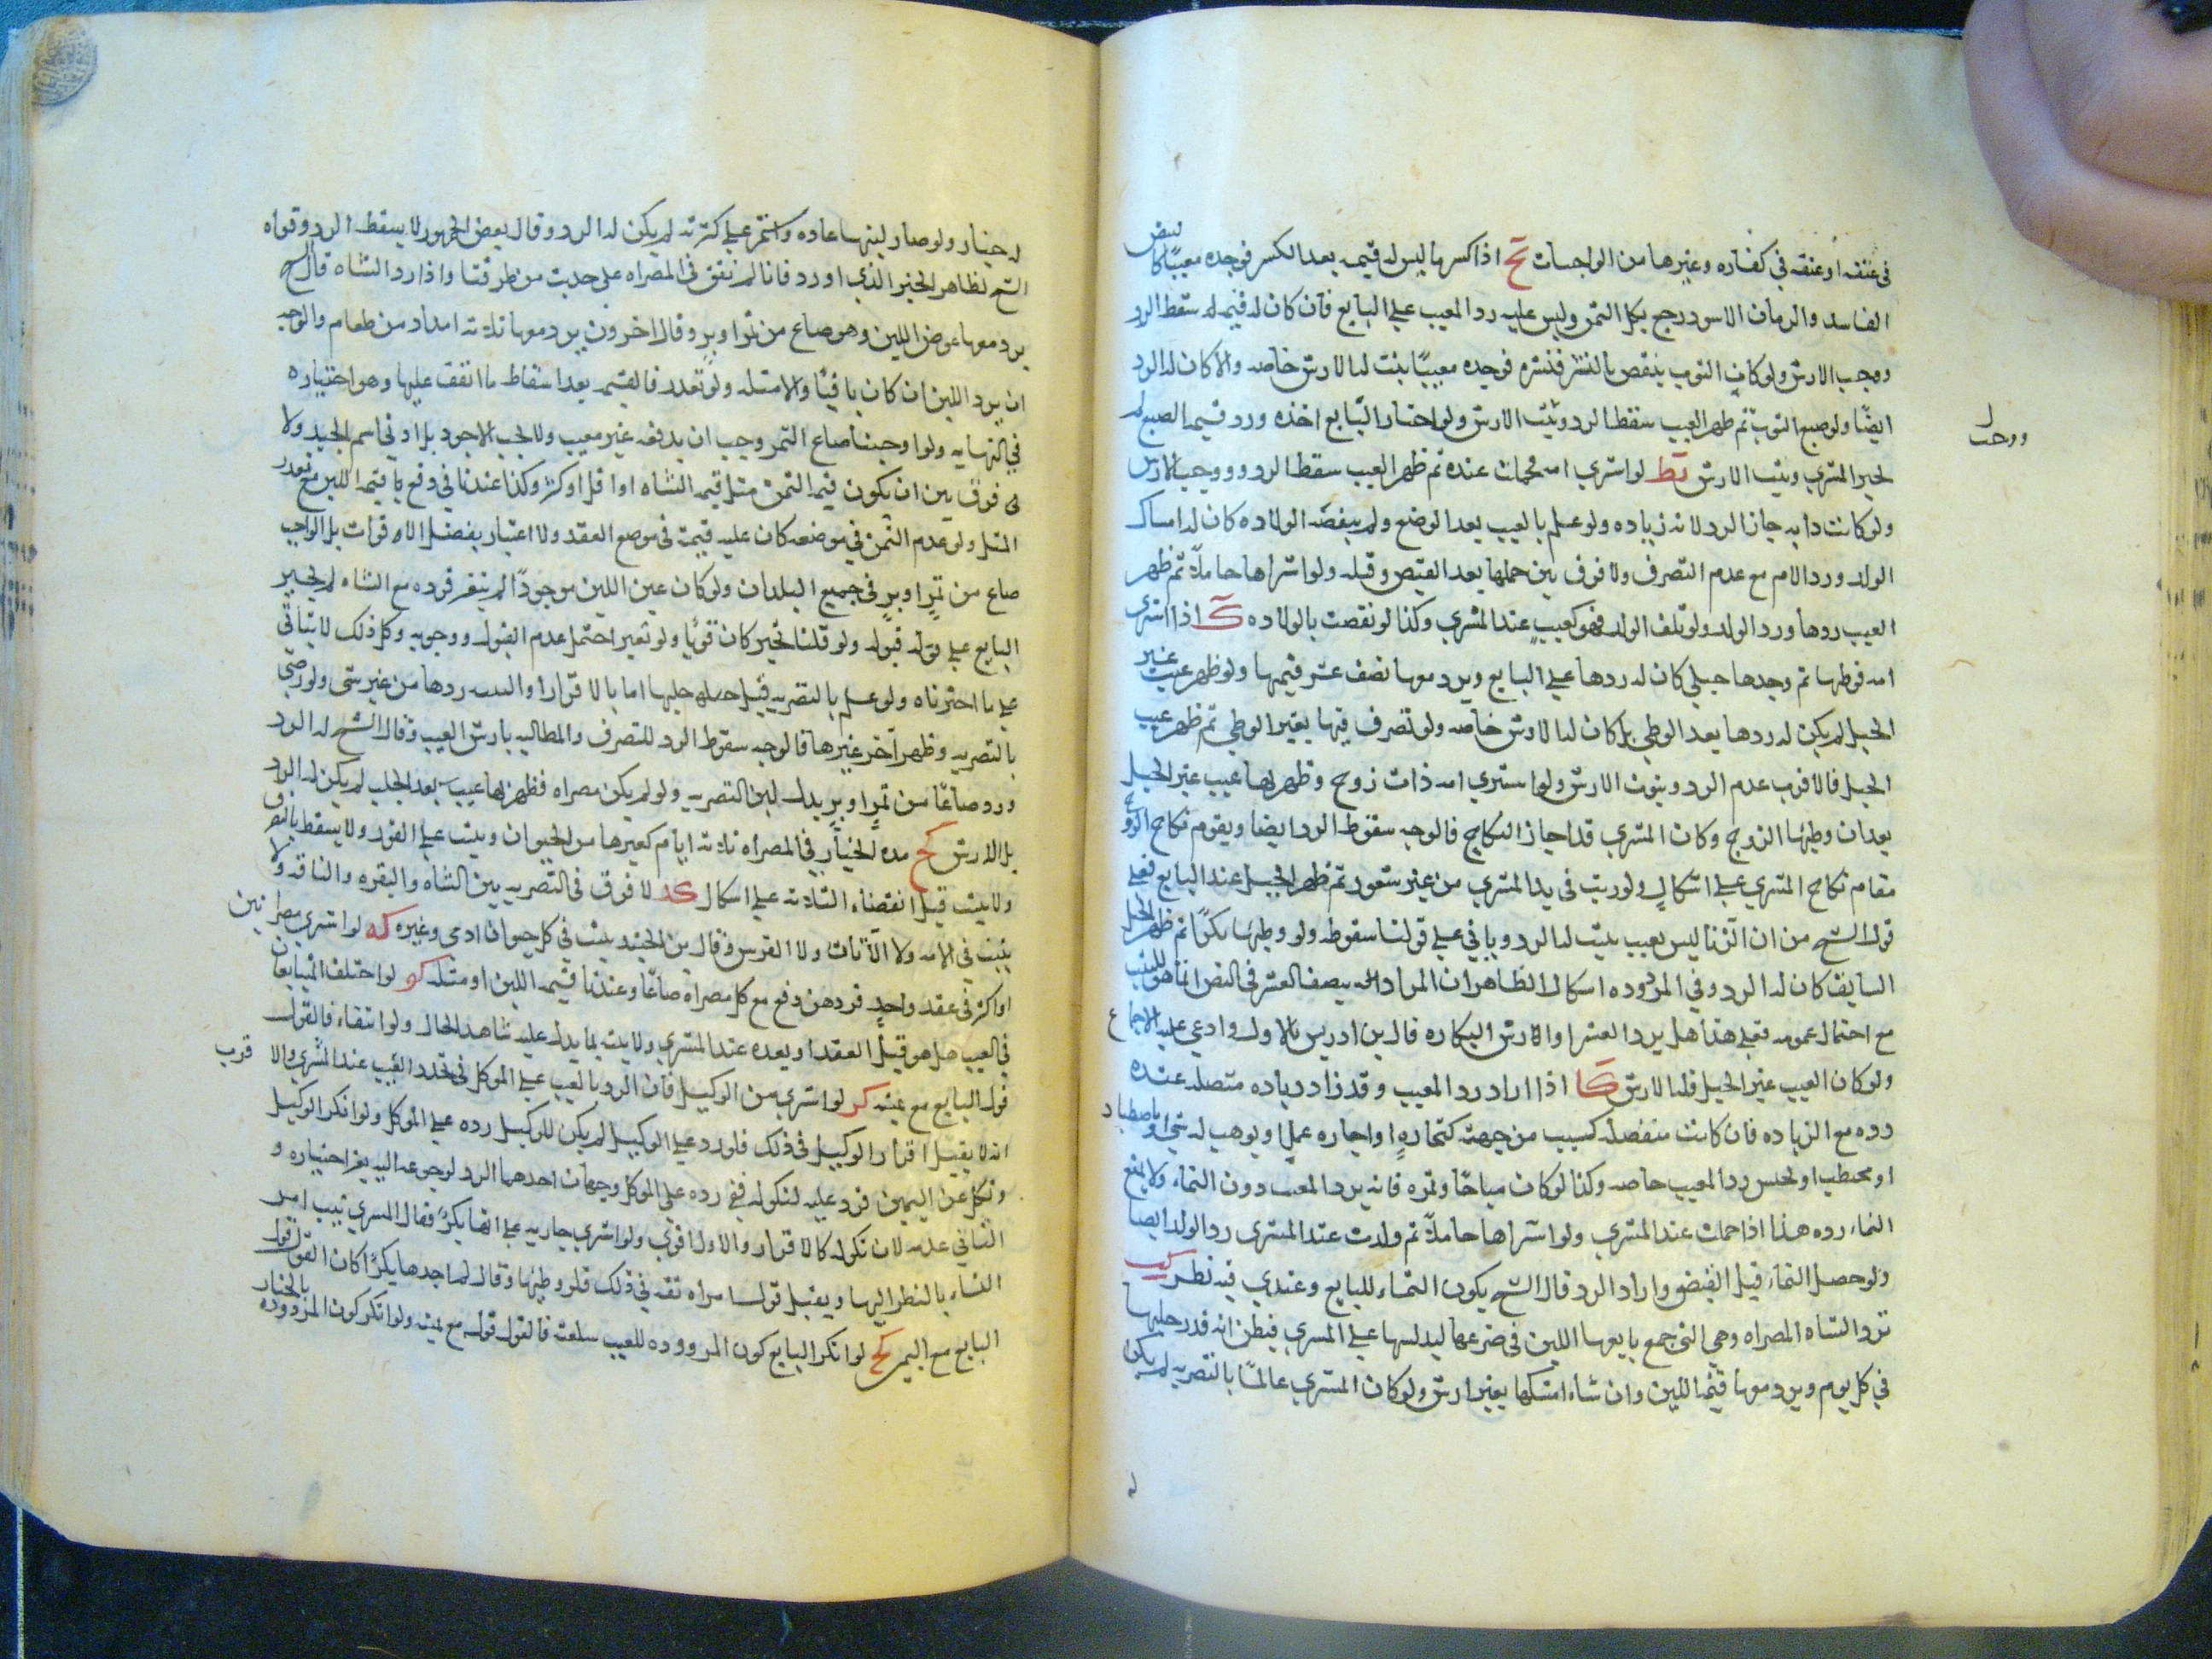 في عتقه او عتقه في كفاره وغيرها من الواجبات يح اذا كسر ما ليس له قيمه بعد الكسر فوجده معيبًا كالبيض
الفاسد والرمان الاسود رجع بكل الثمن وليس عليه رد المعيب على البايع فان كان له قيمه له سقط الرد
ووجب الارش ولو كان الثوب ينقص بالنشر فنشره فوجده معيبًا يثبت له الارش خاصه والا كان له الرد
ايضًا ولو صبغ الثوب ثم ظهر العيب سقط الرد وثبت الارش ولو اختار البايع اخذه ورد قيمه الصبغ لم
يجبر المشتري ويثبت الارش يط لو اشترى امه فحملت عنده ثم ظهر العيب سقط الرد ووجب الارش
ولو كانت دابه جاز الرد لانه زياده ولو علم بالعيب بعد الوضع ولم ينقصه الولاده كان له امساك
الولد ورد الام مع عدم التصرف ولا فرق بين حملها بعد القبض وقبله ولو اشتراها حاملًا ثم ظهر
العيب ردها ورد الولد ولو تلف الولد فهو كعيب عند المشتري وكذا لو نقصت بالولاده ك اذا اشترى
امه فوطيها ثم وجدها حبلى كان له ردها على البايع ويرد معها نصف عشر قيمتها ولو ظهر عيب غير
الحبل لم يكن له ردها بعد الوطي بل كان له الارش خاصه ولو تصرف فيها بغير الوطي ثم ظهر عيب
الحبل فالاقرب عدم الرد وثبوت الارش ولو اشترى امه ذات زوج وظهر لها عيب غير الحبل
بعد ان وطيها الزوج وكان المشتري قد اجاز النكاح فالوجه سقوط الرد ايضا ويقوم نكاح الزوج
مقام نكاح المشتري على اشكال ولو زنت في يد المشتري من غير شعور ثم ظهر الحبل عند البايع فعلى
قول الشيخ من ان الزنا ليس بعيب يثبت له الرد وياتي على قولنا سقوطه ولو وطيها بكرًا ثم ظهر الحبل
السابق كان له الرد وفي المردوده اشكال الظاهر ان المراد به نصف العشر في النص انما هو للثيب
مع احتمال عمومه فعلى هذا هل يرد العشر او الارش البكاره قال بن ادريس بالاول وادعى عليه الاجماع
ولو كان العيب غير الحبل فله الارش كا اذا اراد رد المعيب وقد زاد زياده متصله عنده
رده مع الزياده فان كانت منفصله ككسب من جهته كتجارهٍ او اجاره عمل او يوهب له شي او باصطياد
او يحتطب او يحتش رد المعيب خاصه وكذا لو كان مباحًا وثمره فانه يرد المعيب دون النماء ولا يمنع
النماء رده هذا اذا حملت عند المشتري ولو اشتراها حاملًا ثم ولدت عند المشتري رد الولد ايضا
ولو حصل النماء قبل القبض واراد الرد قال الشيخ يكون النماء للبايع وعندي فيه نظر كب
ترد الشاه المصراه وهي التي جمع بايعها اللبن في ضرعها ليدلسها على المشتري فيظن انه قدر حلبها
في كل يوم ويرد معها قيمه اللبن وان شاء امسكها بغير ارش ولو كان المشتري عالمًا بالتصريه لم يكن
له خيار ولو صار لبنها عاده واستمر على كثرته لم يكن له الرد وقال بعض الجمهور لا يسقط الرد وقواه
الشيخ لظاهر الخبر الذي اورد فانا لم نقف في المصراه على حديث من طرقنا واذا رد الشاه قال الشيخ
يرد معها عوض اللبن وهو صاع من تمر او برٍ وقال اخرون يرد معها ثلاثه امداد من طعام والوجه
ان يرد اللبن ان كان باقيًا والا مثله ولو تعذر فالقيمه بعد اسقاط ما انفق عليها وهو اختياره
في النهايه ولو اوجبنا صاع التمر وجب ان يدفعه غير معيب ولا يجب الاجود بل ادنى اسم الجيد ولا
فرق بين ان يكون قيمه التمر مثل قيمه الشاه او اقل او اكثر وكذا عندنا في دفع باقيمه اللبن مع تعذر
المثل ولو عدم الثمن في موضعه كان عليه قيمته في موضع العقد ولا اعتبار بفضل الاقوات بل الواجب
صاع من تمرٍ او برٍ في جميع البلدان ولو كان عين اللبن موجودًا لم يتغير فرده مع الشاه لم يجبر
البايع على قوله قبوله ولو قلنا يجبر كان قويًا ولو تغير احتمل عدم القبول ووجوبه وكل ذلك لا يتاتي
على ما اخترناه ولو علم بالتصريه قبل حلبها اما بالاقرار او البينه ردها من غير شي ولو رضى
بالتصريه وظهر اخر غيرها فالوجه سقوط الرد للتصرف والمطالبه بارش العيب وقال الشيخ له الرد
ورد صاعًا من تمرٍ او برٍ بدل لبن التصريه ولو لم يكن مصراه فظهر لها عيب بعد الحلب لم يكن له الرد
بل الارش كج مده الخيار في المصراه ثلاثه ايام كغيرها من الحيوان ويثبت على الفور ولا يسقط بالتصرف
ولا يثبت قبل انقضاء الثلاثه على اشكال كد لا فرق في التصريه بين الشاه والبقره والناقه ولا
يثبت في الامه ولا الاتان ولا الفرس وقال بن الجنيد يثبت في كل حيوان ادمى وغيره كه لو اشترى مصراتين
او اكثر في عقد واحدٍ فردهن دفع مع كل مصراه صاعًا وعندنا قيمه اللبن او مثله كو لو اختلف المتبايعان
في العيب هل هو قبل العقد او بعده عند المشتري ولا بينه بما يدل عليه شاهد الحال ولو انتفاء فالقول
قول البايع مع يمينه كز لو اشترى من الوكيل فان الرد بالعيب على الموكل في تجدد العيب عند المشتري والاقرب
انه لا يقبل اقرار الوكيل في ذلك فلو رد على الوكيل لم يكن للوكيل رده على الموكل ولو انكر الوكيل
ونكل عن اليمين فرد عليه لنكوله ففي رده على الموكل وجهان احدهما الرد لرجوعه اليه بغير اختياره و
الثاني عدمه لان نكوله كالاقرار والاول اقوى ولو اشترى جاريه على انها بكرٌ فقال المشتري ثيب امر
النساء بالنظر اليها ويقبل قول امراه ثقه في ذلك فلو وطيها وقال لم اجدها بكرًا كان القول قول
البايع مع اليمين كح لو انكر البايع كون المردوده للعيب سلعته فالقول قوله مع يمينه ولو انكر كون المردوده بالخيار